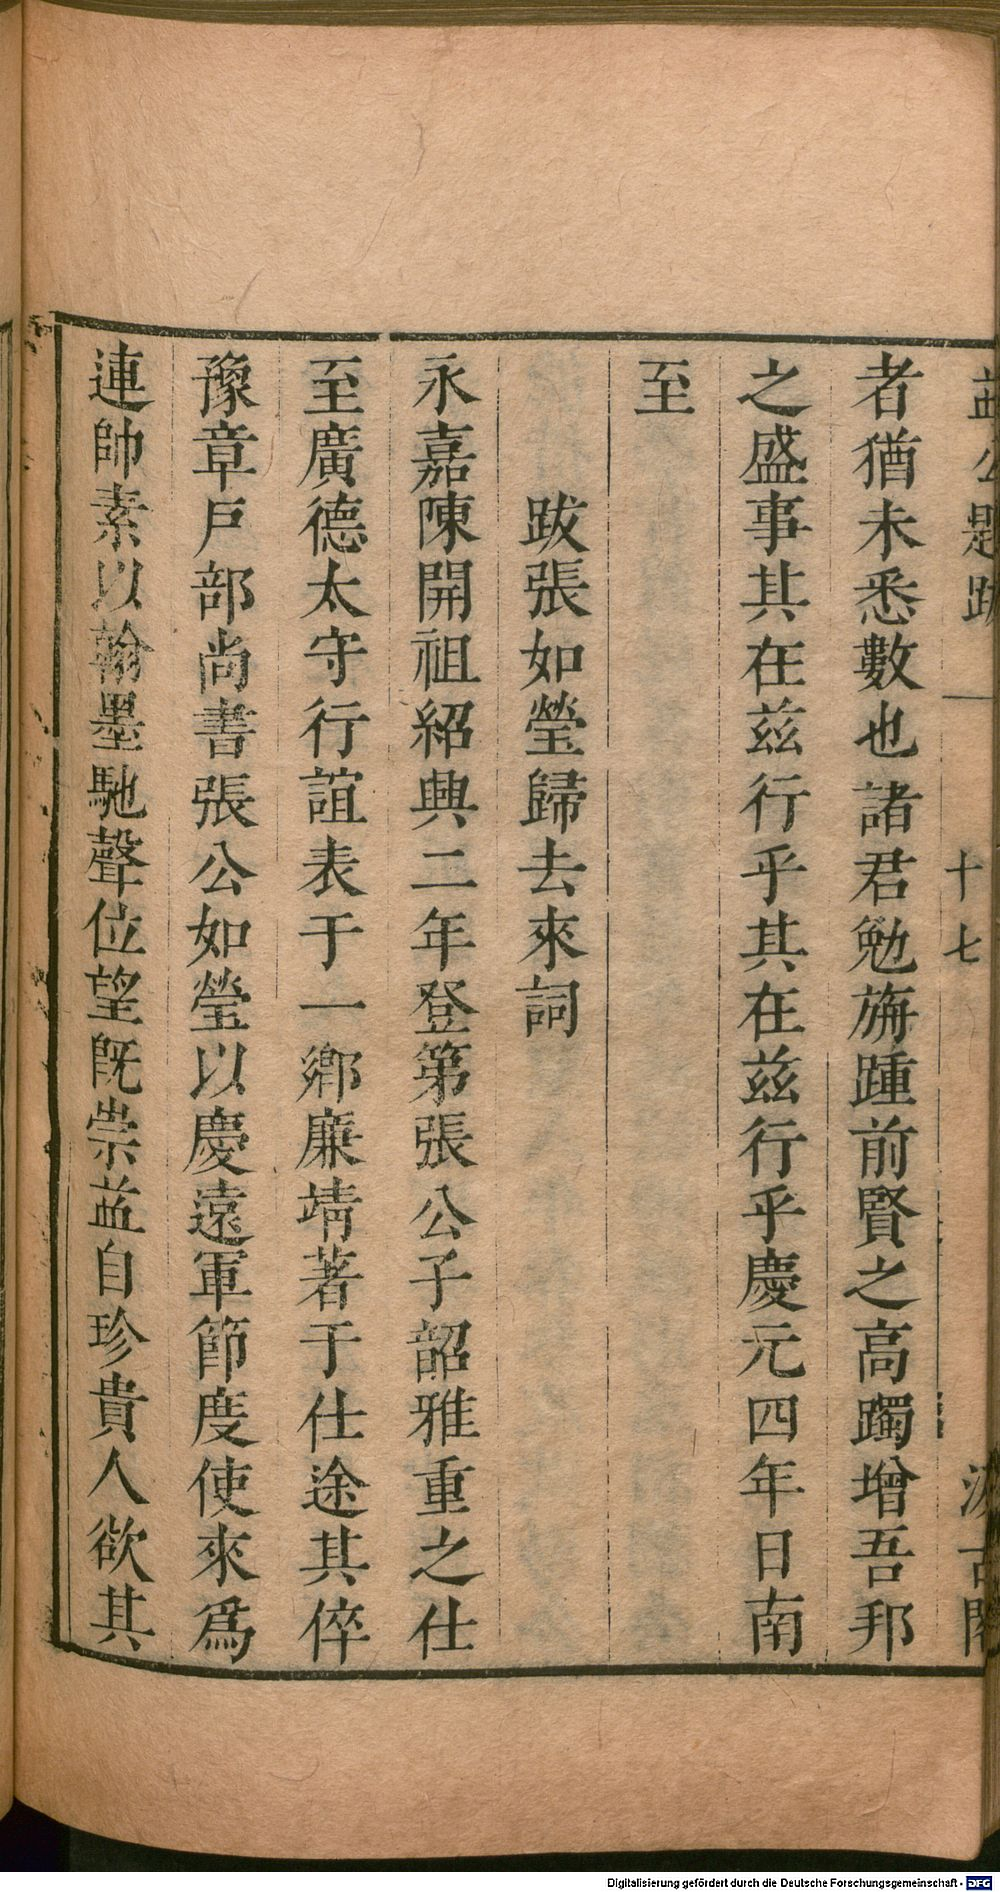 益公題跋 十七 汲古閣
者猶未悉數也諸君勉旃踵前賢之高躅增吾邦
之盛事其在茲行乎其在茲行乎慶元四年日南
至
跋張如瑩歸去來詞
永嘉陳開祖紹興二年登第張公子韶雅重之仕
至廣德太守行誼表于一鄉廉靖著于仕途其倅
豫章戶部尚書張公如瑩以慶遠軍節度使來爲
連帥素以翰墨馳聲位望旣崇益自珍貴人欲其
Digitalisierung gefördert durch die Deutsche Forschungsgemeinschaft - DFG